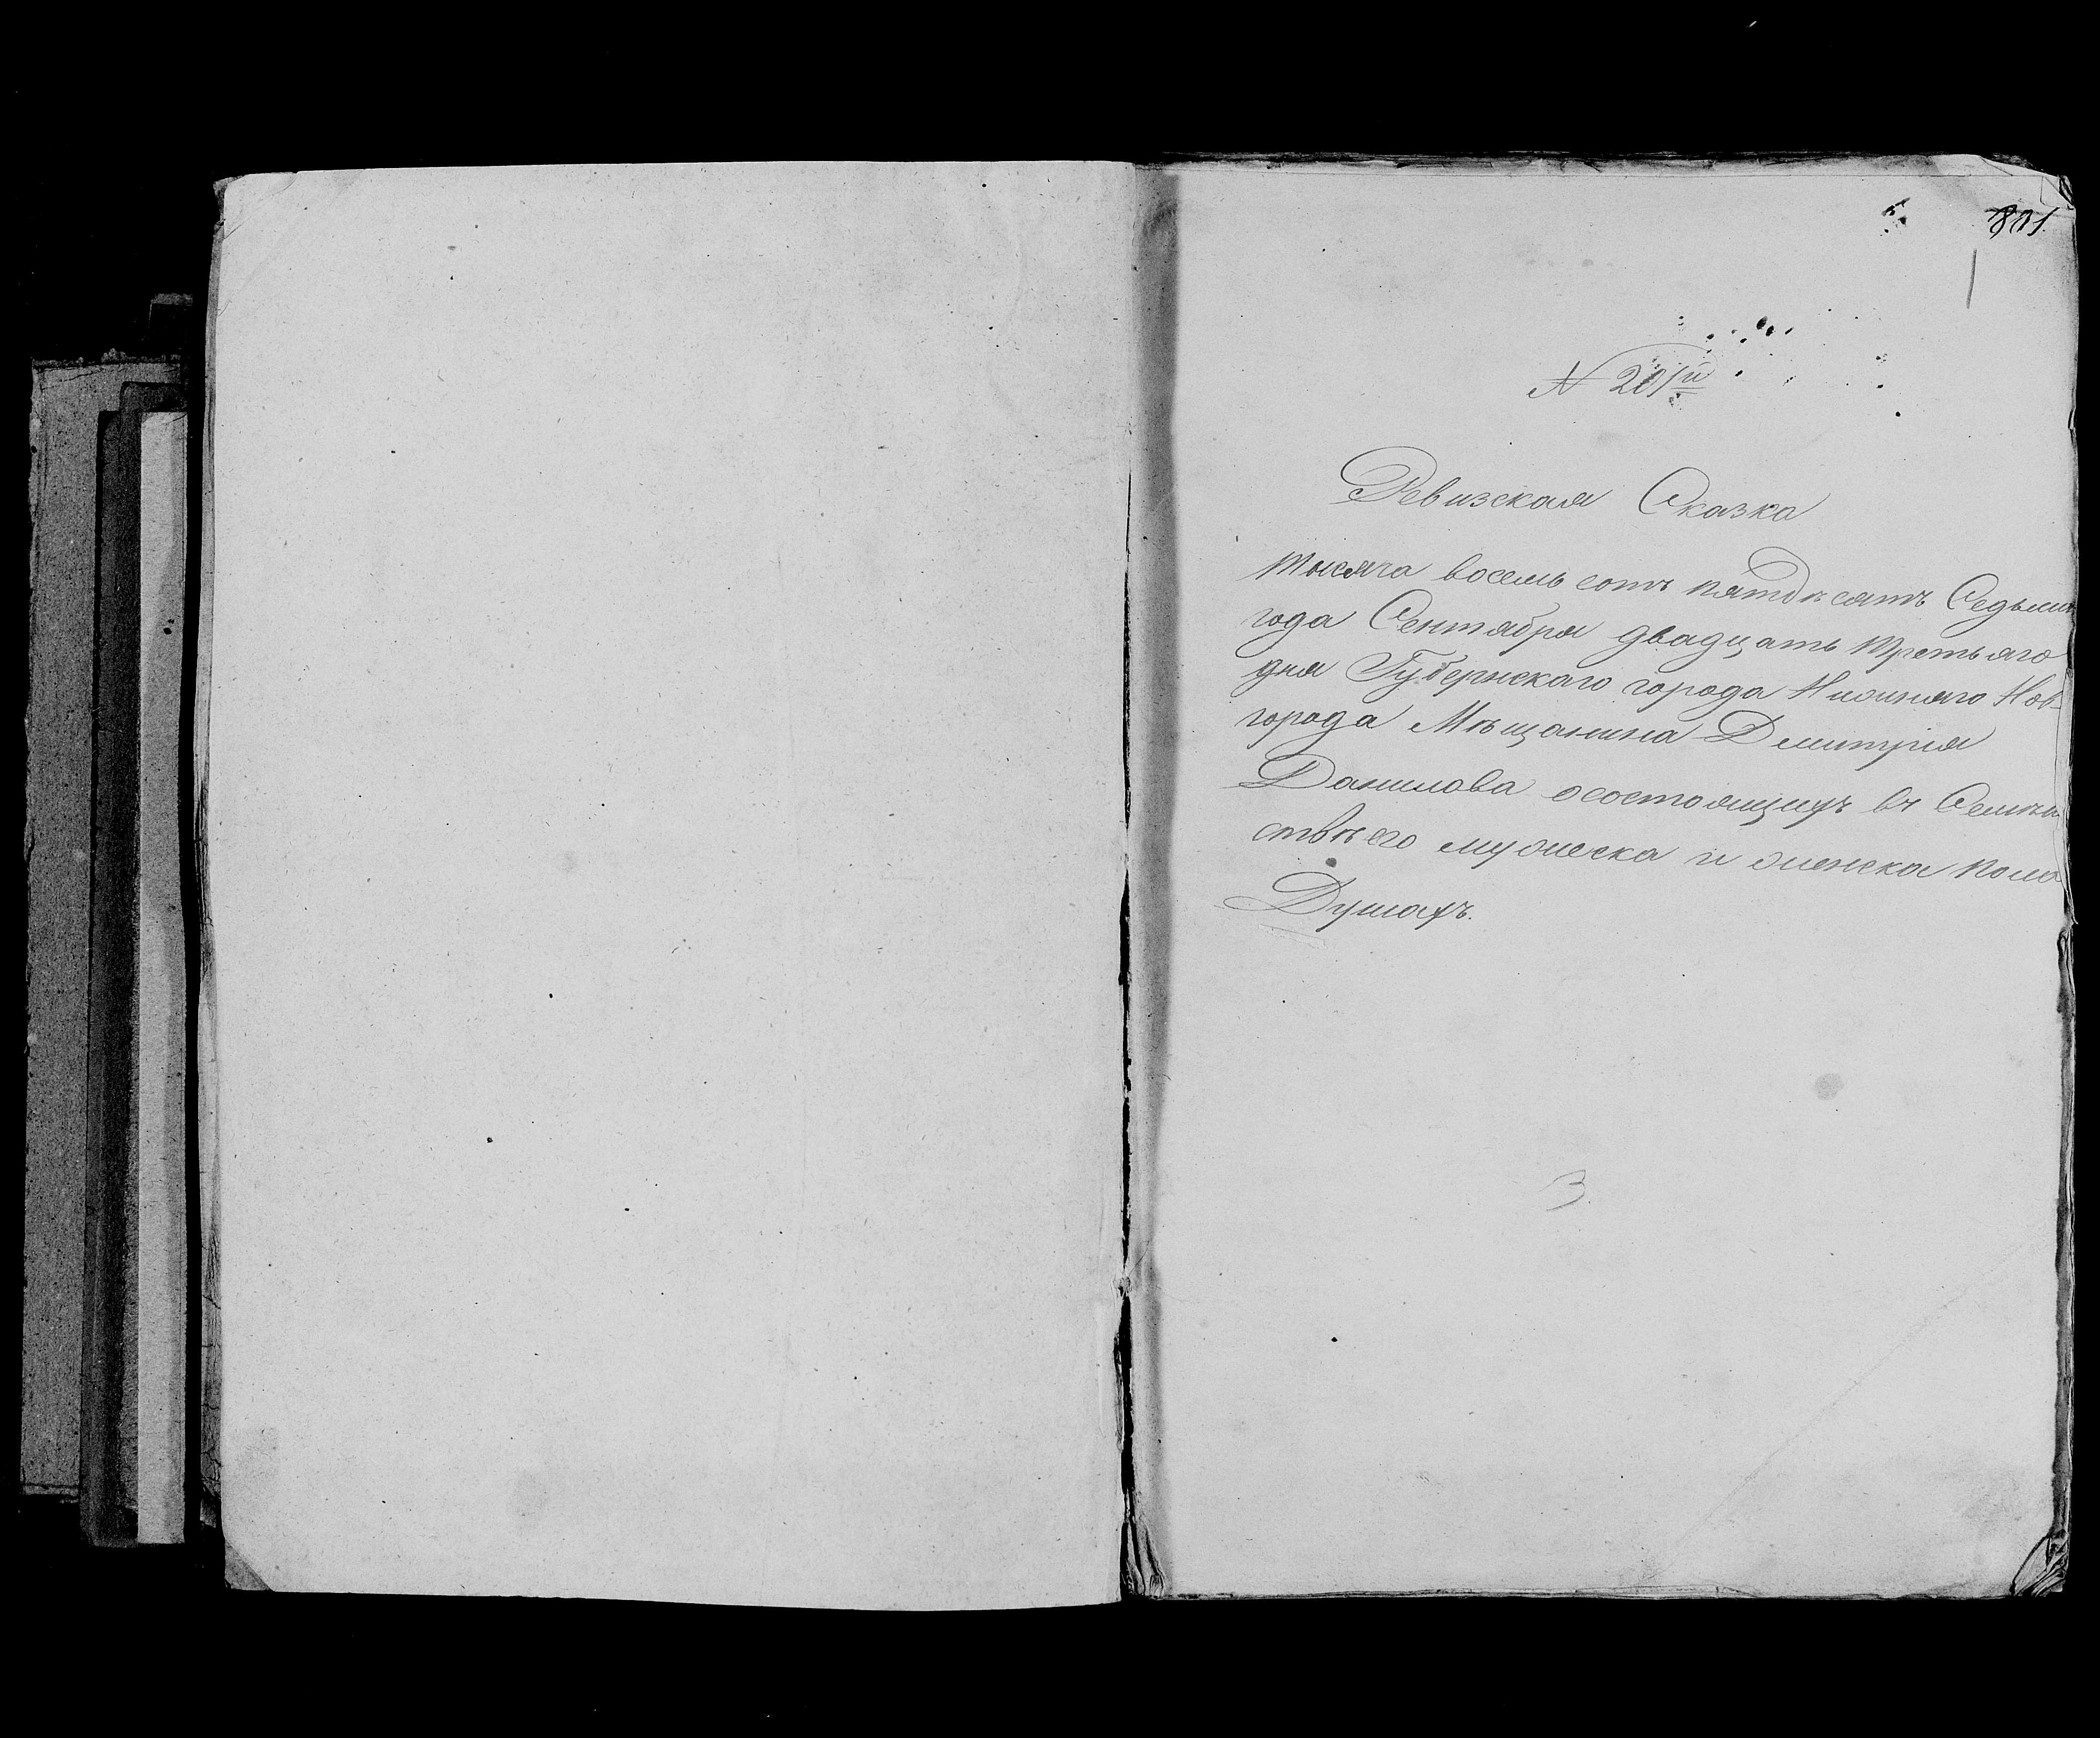 801
N 201й
Ревизская Сказка
тысяча восемь сотъ пятдѣсятъ Седьмаго
года Сентября двадцать третьяго
дня Губернскаго города Нижняго Нов-
города Мѣщанина Дмитрия
Данилова осостоящихъ въ Семѣй
ствѣ его мужеска и женска пола
Душахъ.
3